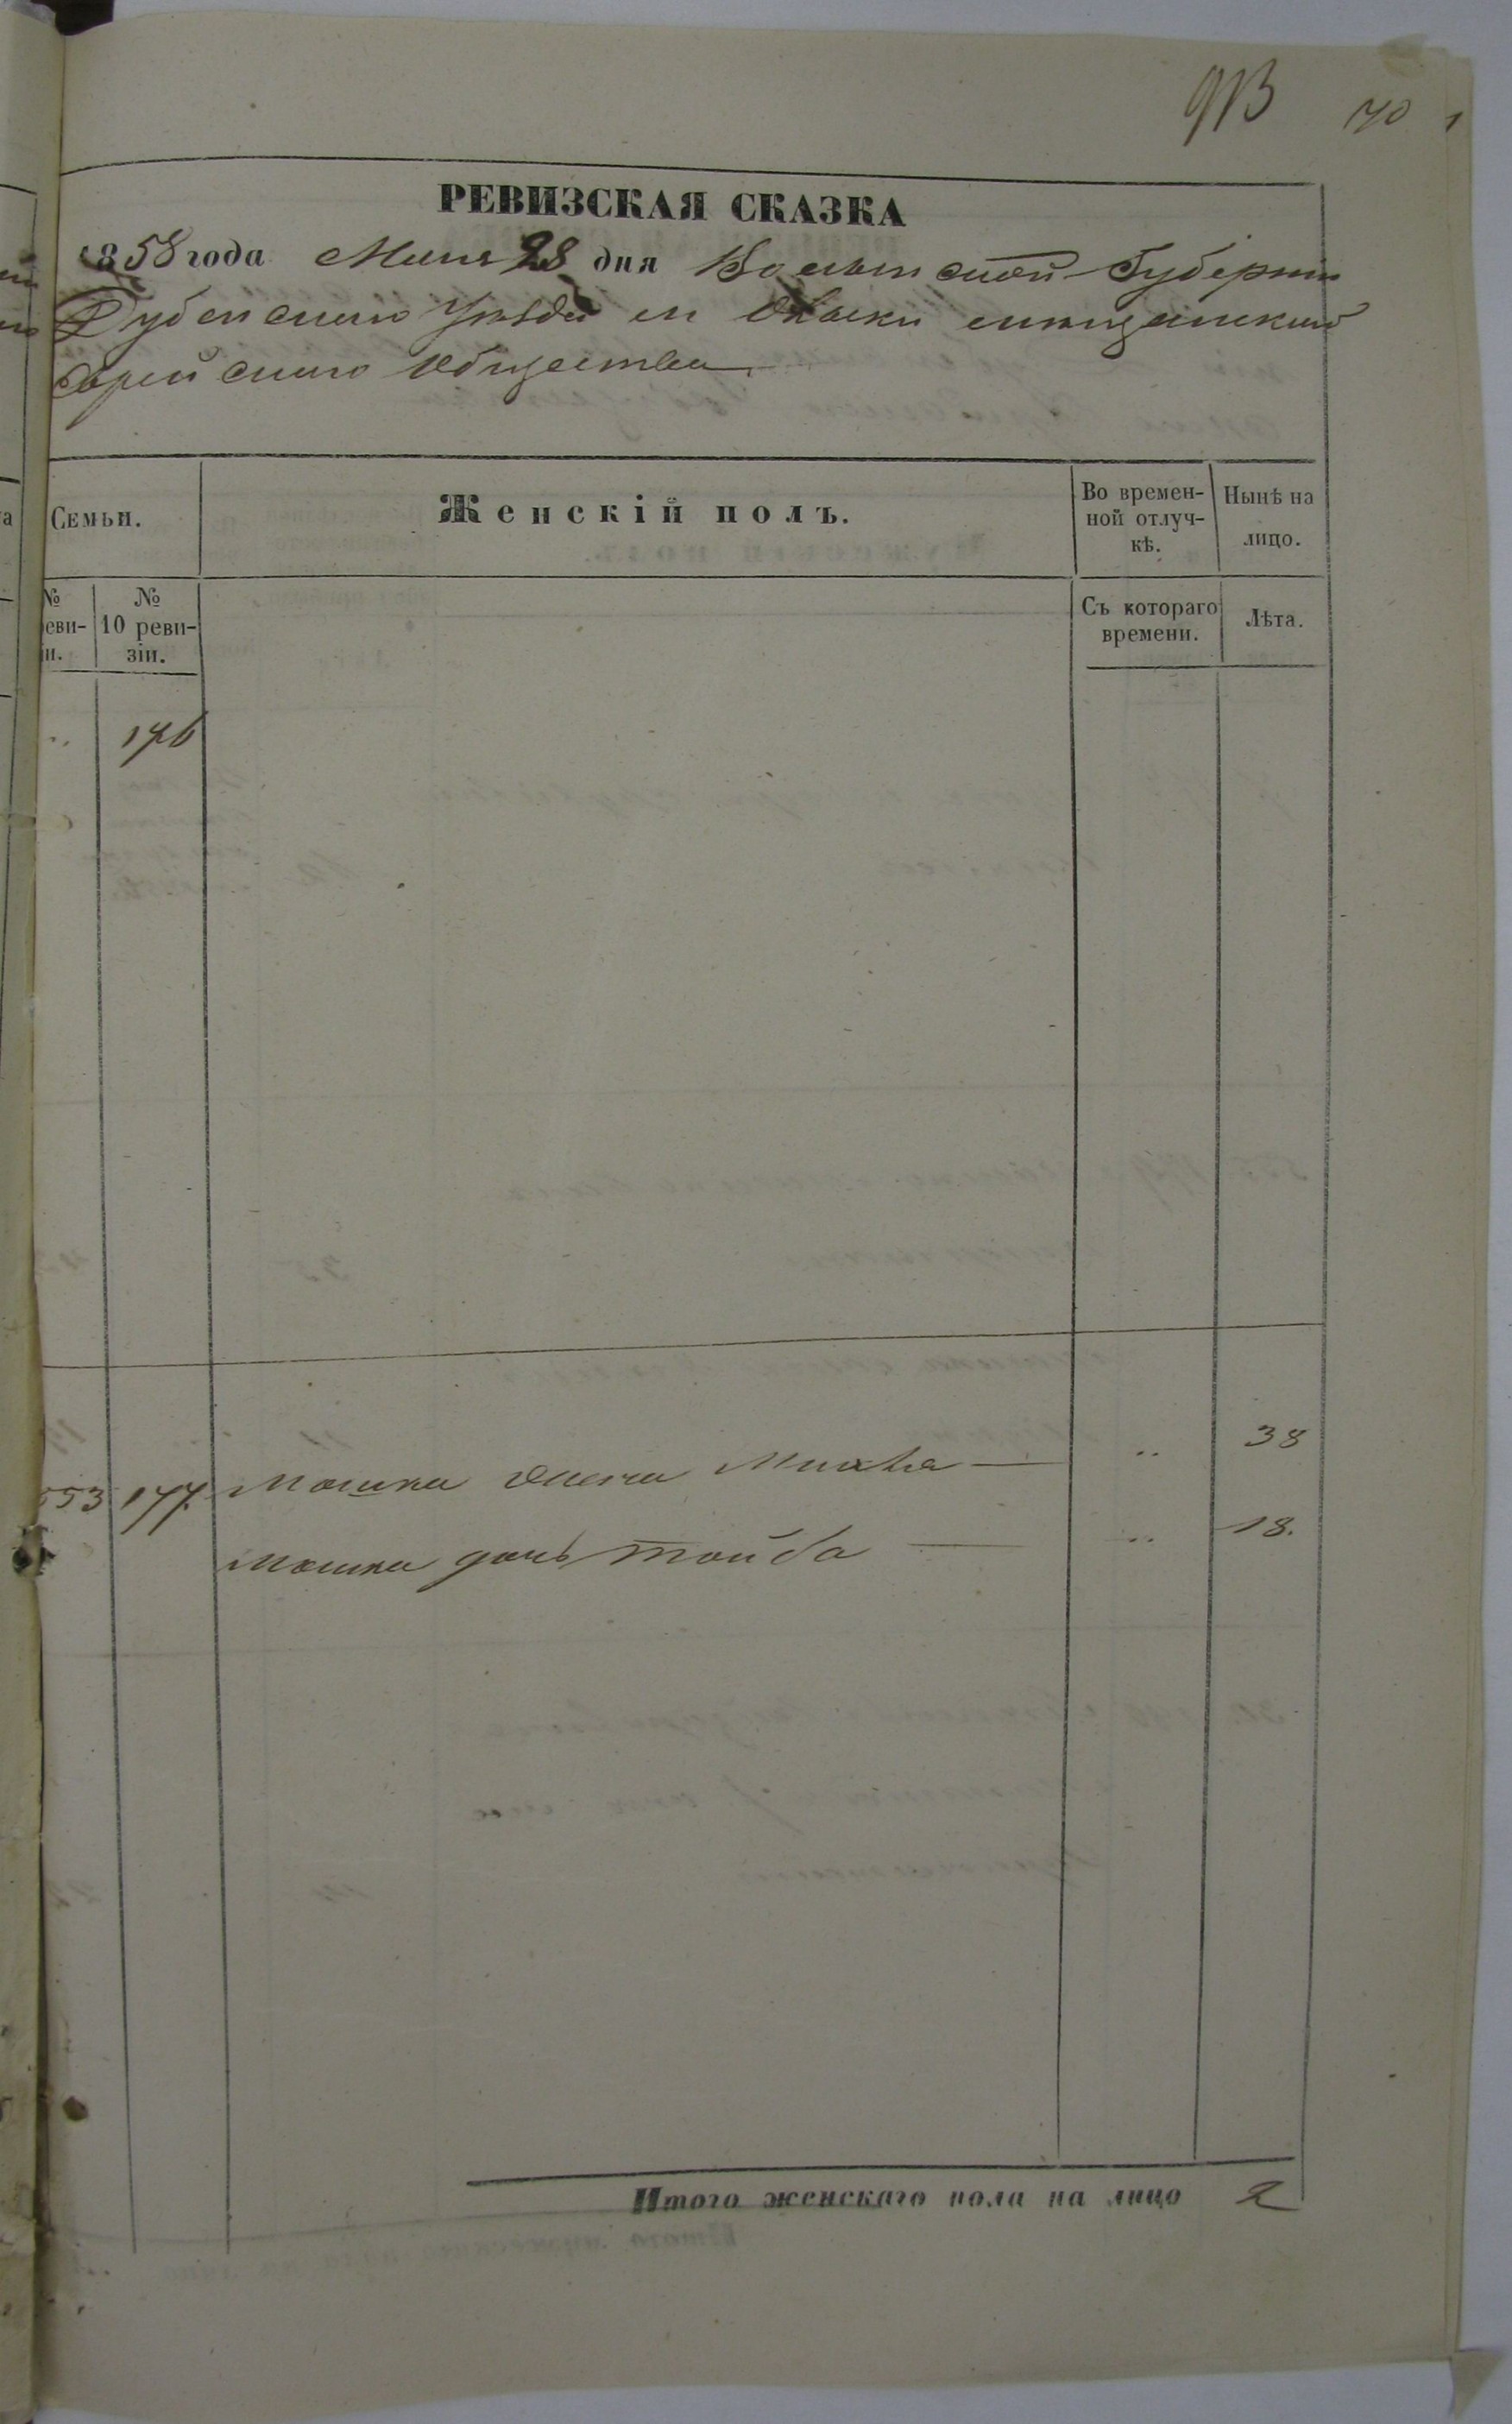 913 70
РЕВИЗСКАЯ СКАЗКА
1858 года Мая 28 дня Волынской Губерніи
Дубенскаго Уѣзда м Олыки мещанскаго
Еврейскаго Общества
Семьи.
Женскій полъ.
Во времен-
ной отлуч-
кѣ.
Нынѣ на
лицо.
№
реви-
зіи.
№
10 реви-
зіи.
Съ котораго
времени.
Лѣта.
" 176
553 177 Мошка жена Михля — " 38
Мошка дочь Тойба — " 18.
Итого женскаго пола на лицо 2